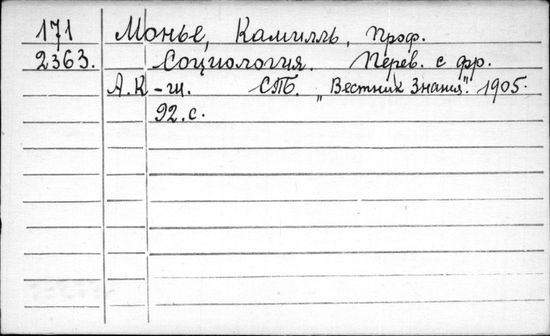 171 Монье, Камилль, проф.
2363. Социология. Перев. с фр.
А. К-ш. СПб. „Вестник Знания". 1905.
92.с.